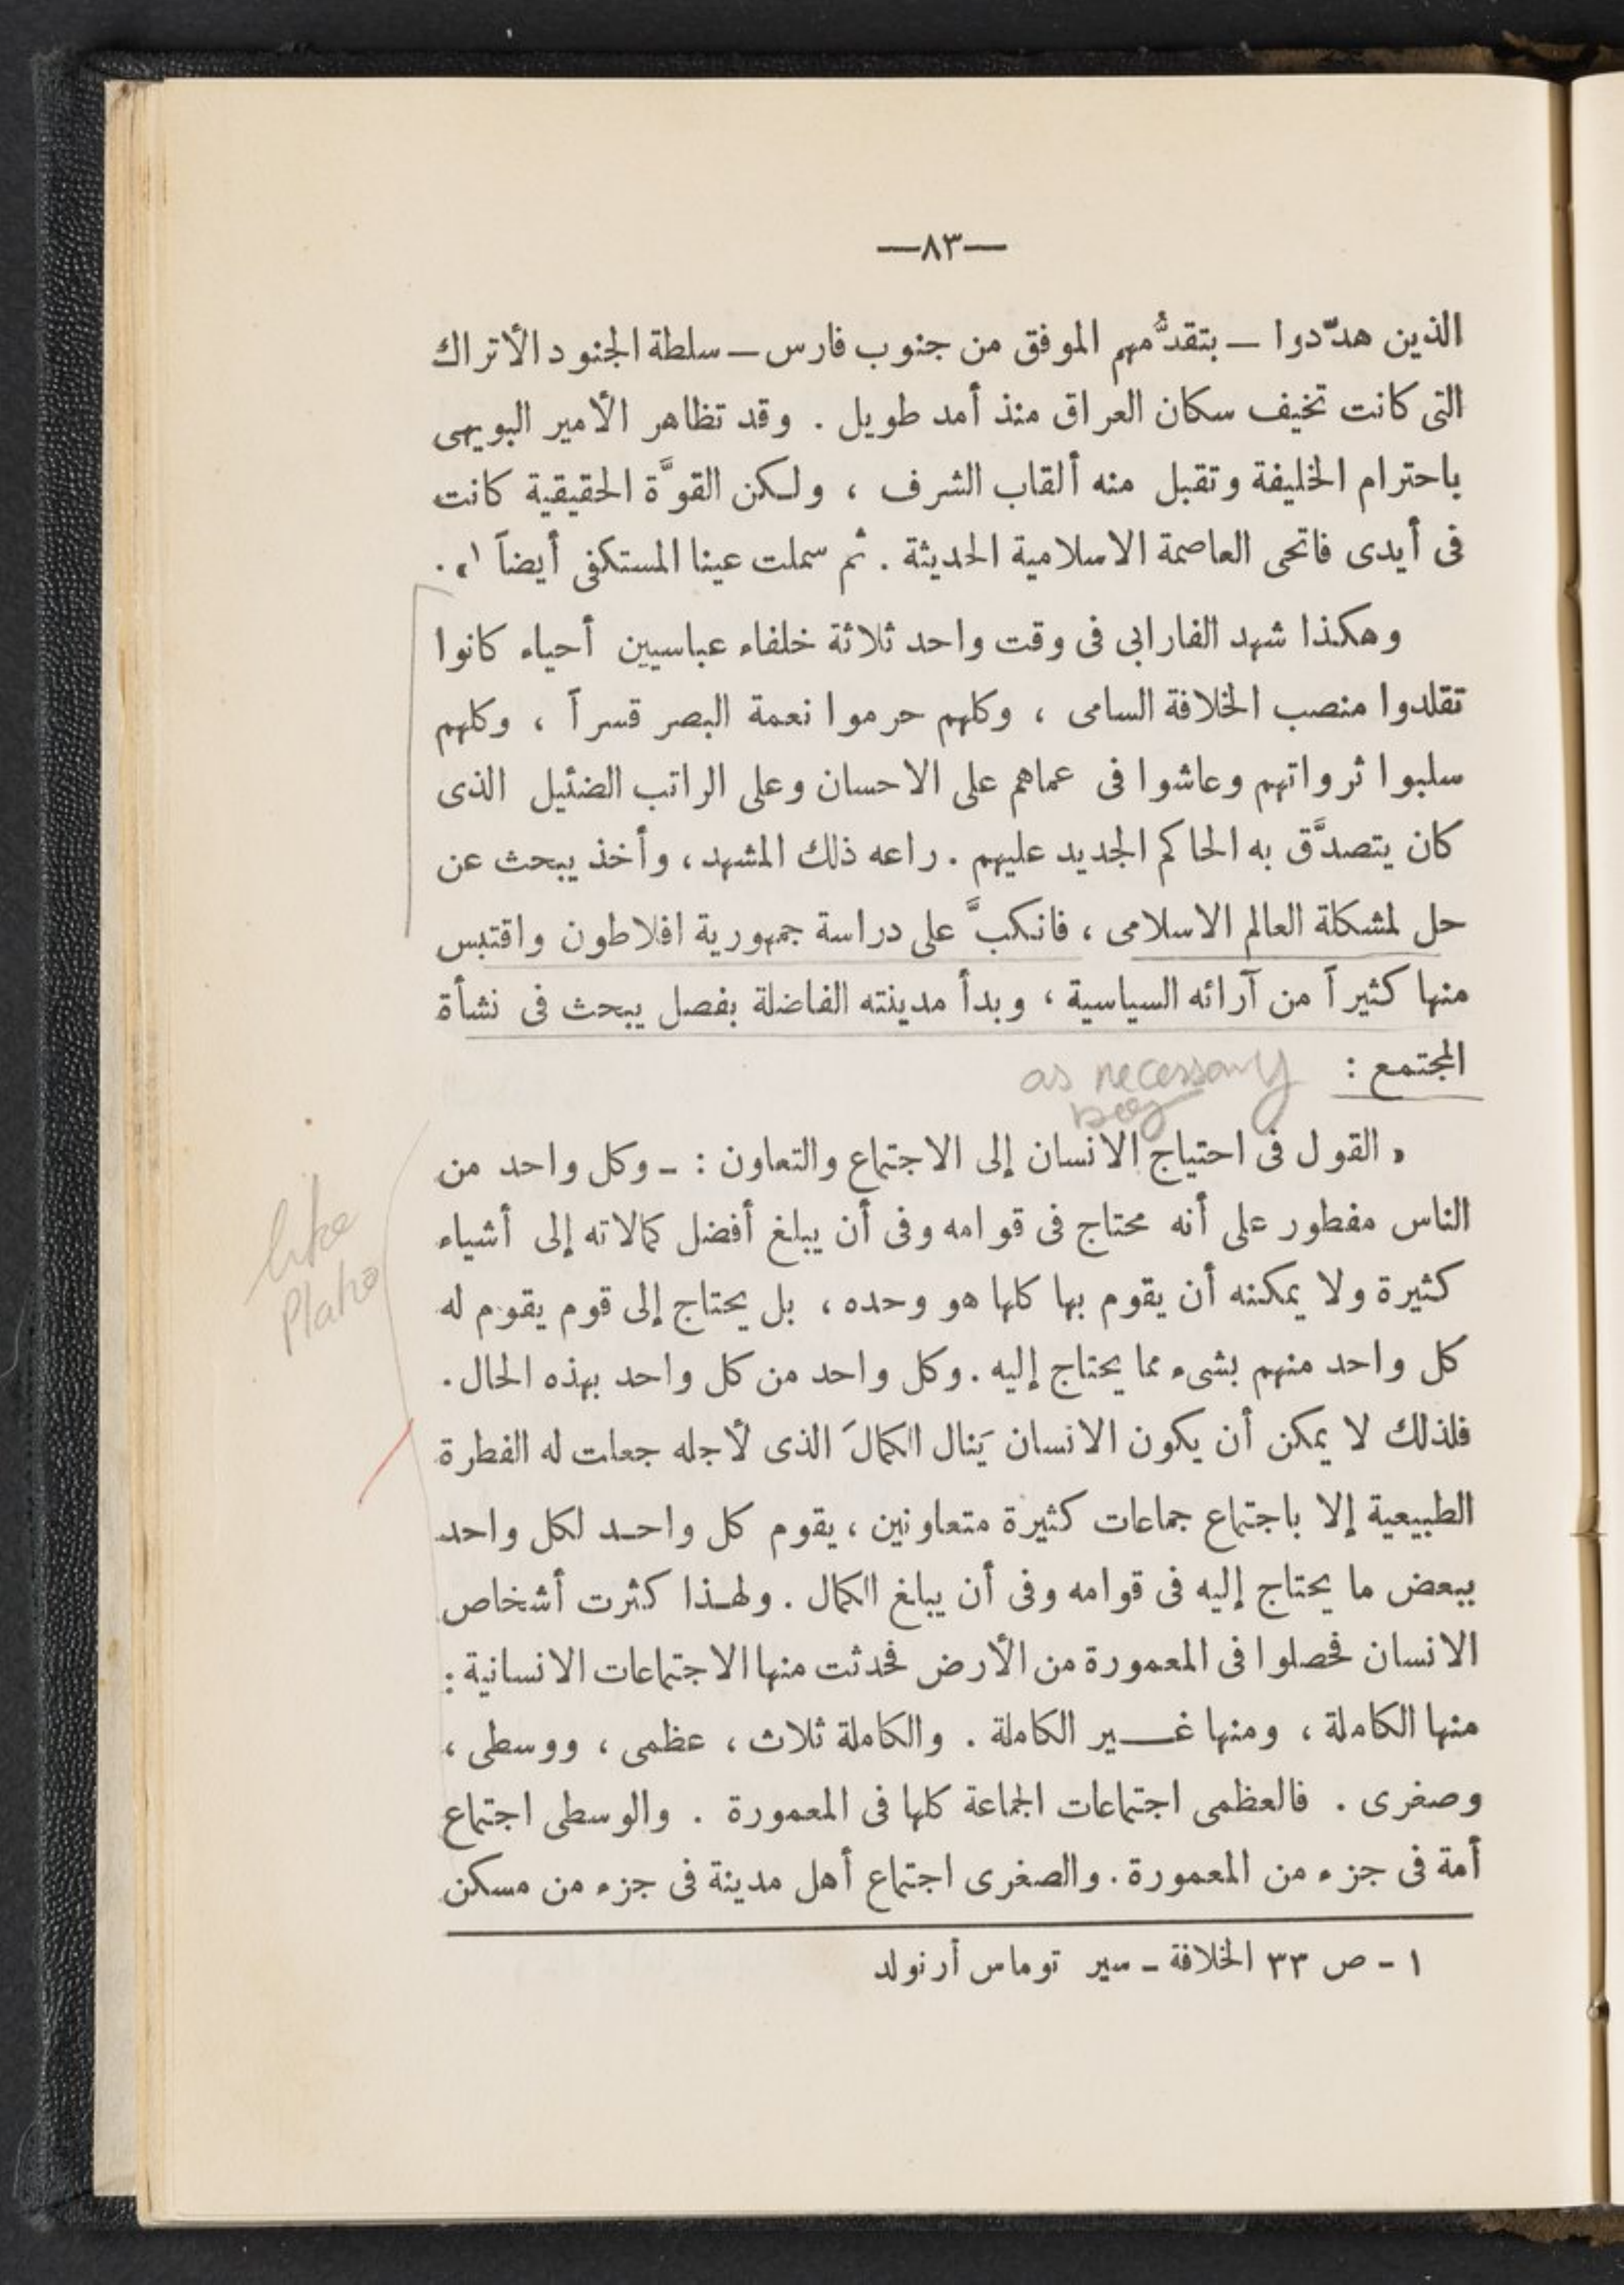 —٨٣—
الذين هدّدوا — بتقدُّمهم الموفق من جنوب فارس — سلطة الجنود الأتراك
التى كانت تخيف سكان العراق منذ أمد طويل . وقد تظاهر الأمير البويهى
باحترام الخليفة وتقبل منه ألقاب الشرف ، ولكن القوَّة الحقيقية كانت
فى أيدى فاتحى العاصمة الاسلامية الحديثة . ثم سملت عينا المستكفى أيضاً ١» .
وهكذا شهد الفارابى فى وقت واحد ثلاثة خلفاء عباسيين أحياء كانوا
تقلدوا منصب الخلافة السامى ، وكلهم حرموا نعمة البصر قسراً ، وكلهم
سلبوا ثرواتهم وعاشوا فى عماهم على الاحسان وعلى الراتب الضئيل الذى
كان يتصدَّق به الحاكم الجديد عليهم . راعه ذلك المشهد ، وأخذ يبحث عن
حل لمشكلة العالم الاسلامى ، فانكبَّ على دراسة جمهورية افلاطون واقتبس
منها كثيراً من آرائه السياسية ، وبدأ مدينته الفاضلة بفصل يبحث فى نشأة
المجتمع :
as necessary
« القول فى احتياج الانسان إلى الاجتماع والتعاون : ـ وكل واحد من
الناس مفطور على أنه محتاج فى قوامه وفى أن يبلغ أفضل كمالاته إلى أشياء
كثيرة ولا يمكنه أن يقوم بها كلها هو وحده ، بل يحتاج إلى قوم يقوم له
كل واحد منهم بشىء مما يحتاج إليه . وكل واحد من كل واحد بهذه الحال .
فلذلك لا يمكن أن يكون الانسان يَنال الكمالَ الذى لأجله جعلت له الفطرة
الطبيعية إلا باجتماع جماعات كثيرة متعاونين ، يقوم كل واحد لكل واحد
ببعض ما يحتاج إليه فى قوامه وفى أن يبلغ الكمال . ولهذا كثرت أشخاص
الانسان فحصلوا فى المعمورة من الأرض فحدثت منها الاجتماعات الانسانية :
منها الكاملة ، ومنها غير الكاملة . والكاملة ثلاث ، عظمى ، ووسطى ،
وصغرى . فالعظمى اجتماعات الجماعة كلها فى المعمورة . والوسطى اجتماع
أمة فى جزء من المعمورة . والصغرى اجتماع أهل مدينة فى جزء من مسكن
١ - ص ٣٣ الخلافة - سير توماس أرنولد
like
Plato